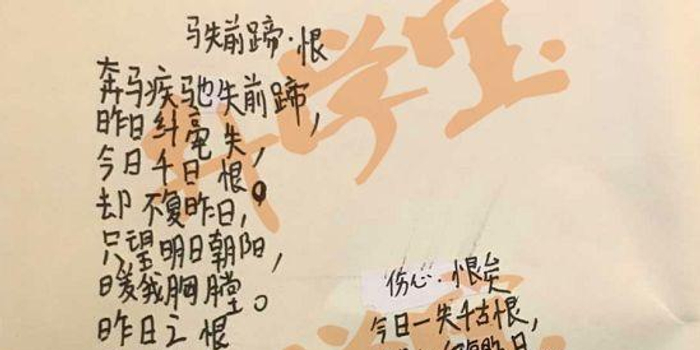 马失前蹄·恨
奔马疾驰失前蹄,
昨日纤毫失,
今日千日恨。
却不复昨日,
只望明日朝阳,
暖我胸膛。
昨日之恨
伤心·恨
今日一失千古恨,
昨日
升学宝